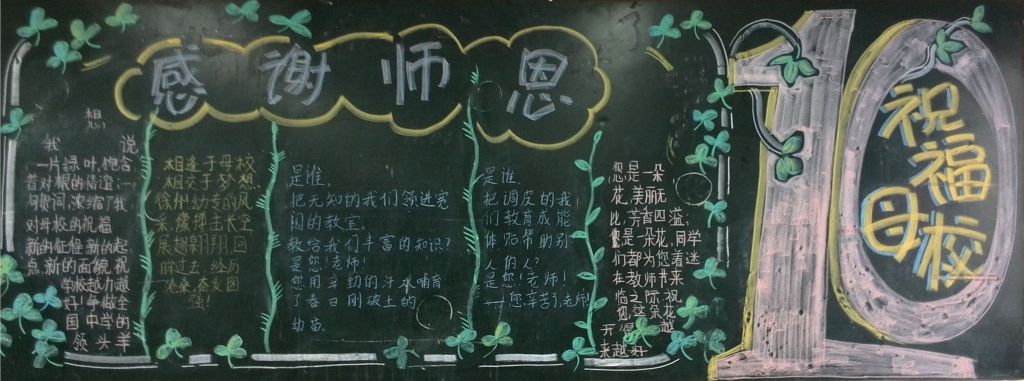 感谢师恩
想,
我 说
一片绿叶,饱含
着对根的情谊;一
句慰问,浓缩了我
对母校的祝福
新的征程新的起
点新的面貌祝
学校越办越
好!争做全
国中学的
领头羊
相逢于母校
相交于梦想.
徐州经专的风
采,像塔主长空
展翅翱翔回
眸过去,经历
沧桑,奋发图
强!
是谁.
把无知的我们领进宽
阔的教室
教给我们丰富的知识?
是您!老师!
您用辛勤的汗水哺育
了春日刚破土的
幼苗.
是谁
把调皮的我
们教育成能
体贴帮助别
人的人?
是您!老师!
——您辛苦了,老师
您是一朵
花,美丽无
比,芳香四溢;
您是一朵花,同学
们都为您着迷
在教师节来
临之际祝
您这朵花
开得越
来越好
10
祝福
母校